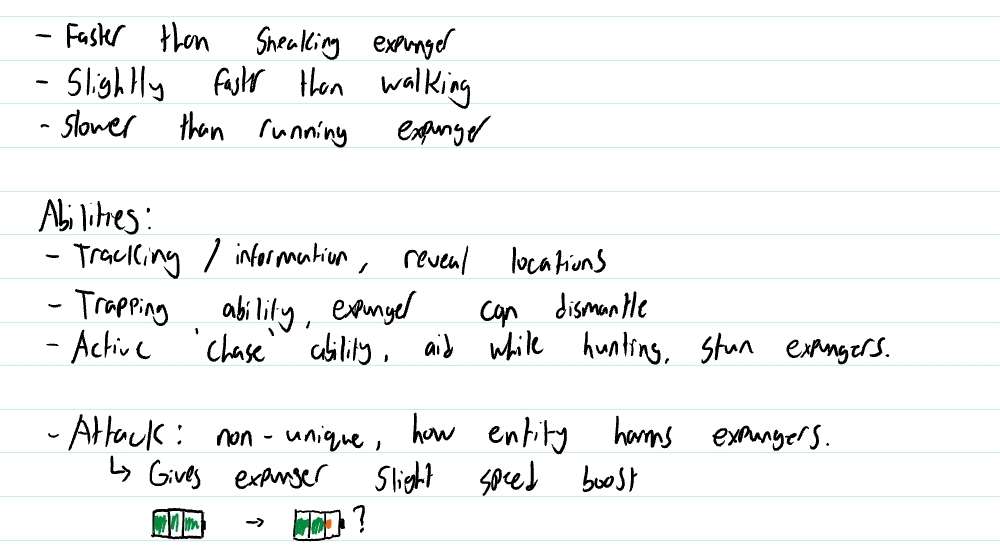 - Faster than sneaking expunger
- Slightly faster than walking
- Slower than running expunger
Abilities:
- Tracking / information, reveal locations
- Trapping ability, expunger can dismantle
- Active 'chase' ability, aid while hunting, stun expungers.
- Attack: non-unique, how entity harms expungers.
↳ Gives expunger slight speed boost
→ ?